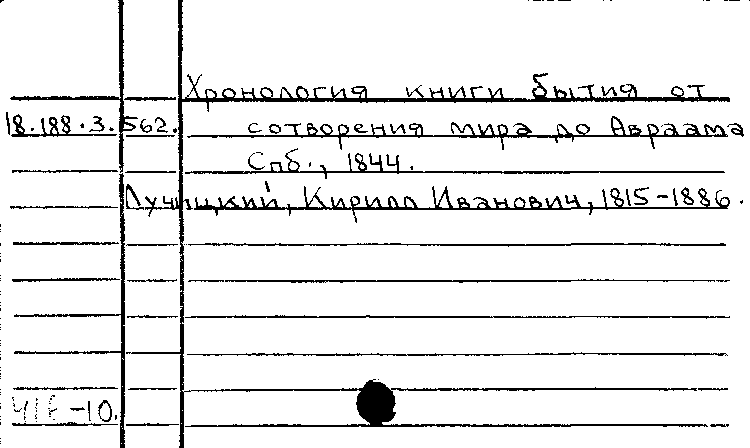 Хронология книги бытия от
18.188.3.562. сотворения мира до Авраама
Спб., 1844.
Лучицкий, Кирилл Иванович, 1815-1886.
-10.